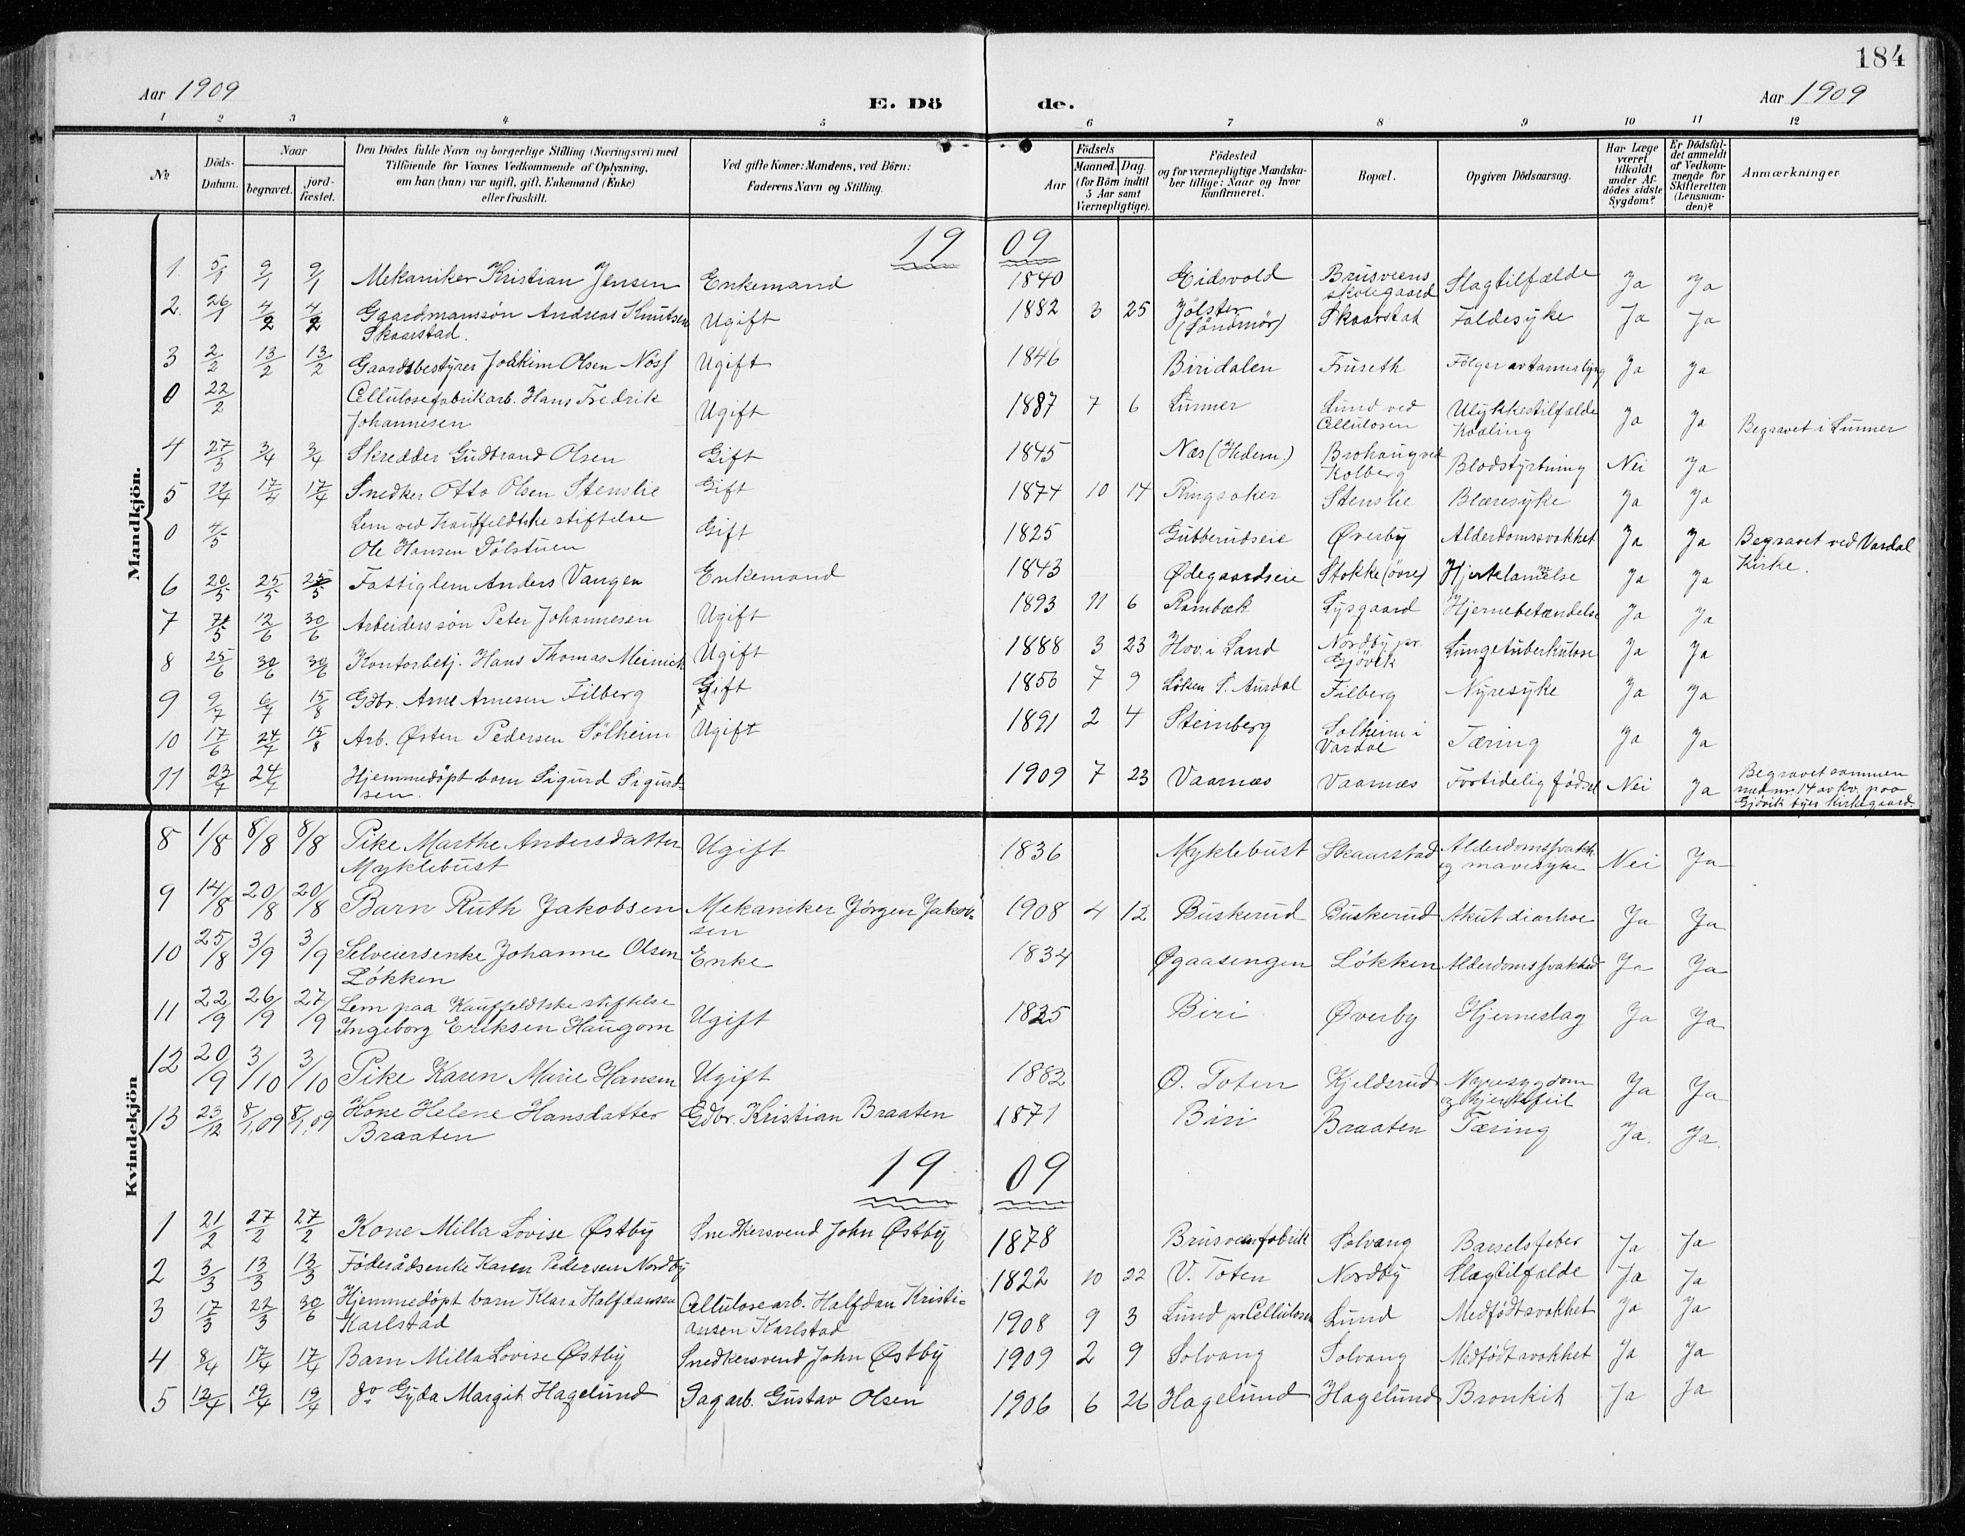 184
Aar 1909 E. Dö de. Aar 1909
1 2 3 4 5 6 7 8 9 10 11 12
No
Döds-Datum.
Naar
begravet.
jord-fæstet.
Den Dödes fulde Navn og borgerlige Stilling (Næringsvei) med
Tilföiende for Voxnes Vedkommende af Oplysning,
om han (hun) var ugift, gift, Enkemand (Enke)
eller fraskilt.
Ved gifte Koner: Mandens, ved Börn:
Faderens Navn og Stilling.
Födsels
Aar
Maaned. Dag.
(for Börn indtil
5 Aar samt
Værnepligtige).
Födested
og for værnepligtige Mandska-
ber tillige: Naar og hvor
konfirmeret.
Bopæl.
Opgiven Dödsaarsag.
Har Læge
været
tilkaldt
under Af-
dödes sidste
Sygdom?
Er Dödsfal-
det anmeldt
af Vedkom-
mende for
Skifteretten
(Lensman-
den)?
Anmærkninger
Mandkjön.
19 09
1 5/1 9/1 9/1 Mekaniker Kristian Jensen Enkemand 1840 Eidsvold Brusveens skolegaard Slagtilfælde Ja Ja
2 26/1 4/2 4/2 Gaardmanssøn Andreas Knutsen Skaarstad. Ugift 1882 3 25 Jølster (Søndmør) Skaarstad Faldesyke Ja Ja
3 2/2 13/2 13/2 Gaardsbestyrer Joakim Olsen Ugift 1846 Biridalen Fruseth Følger av Ja Ja
0 22/2 Cellulosefabrikarb. Hans Fredrik Johannesen Ugift 1887 7 6 Lunner Lund ved Cellulosen Ulykkestilfælde Kvæling Ja Ja Begravet i Lunner
4 27/3 3/4 3/4 Skredder Gudbrand Olsen Gift 1845 Næs (Hedem.) Brohaug ved Kolberg Blodstyrtning Nei Ja
5 11/4 17/4 17/4 Snedker Otto Olsen Stenslie Gift 1874 10 14 Ringsaker Stenslie Blæresyke Ja Ja
0 4/5 Lem ved Kauffeldtske stiftelse Ole Hansen Dølstuen Gift 1825 Gubberudseie Øverby Alderdomssvakhet Ja Ja Begravet ved Vardal Kirke.
6 20/5 25/5 25/5 Fattiglem Anders Vangen Enkemand 1843 Ødegaardseie Stokke (øvre) Hjertelammelse Ja Ja
7 /5 12/6 30/6 Arbeiderssøn Peter Johannesen Ugift 1893 11 6 Rambæk Sysgaard Hjernebetændelse Ja Ja
8 25/6 30/6 30/6 Kontorbetj. Hans Thomas Meinich Ugift 1888 3 23 Hov i Land Nordby pr. Gjøvik Lungetuberkulose Ja Ja
9 9/7 6/7 15/8 Gdbr. Arne Arnesen Filberg Gift 1856 7 9 Løken S. Aurdal Filberg Nyresyke Ja Ja
10 17/6 24/7 15/8 Arb. Østen Pedersen Solheim Ugift 1891 2 4 Steinberg Solheim i Vardal Tæring Ja Ja
11 23/7 24/7 Hjemmedøpt barn Sigurd Sigurd-sen. 1909 7 23 Vaarnæs Vaarnæs Fortidelig fødsel Nei Ja Begravet sammen med nr. 14 av kv. paa Gjøvik byes kirkegaard.
Kvindekjön
8 1/8 8/8 8/8 Pike Marthe Andersdatter Myklebust Ugift 1836 Myklebust Skaarstad Alderdomssvakh. og mavesyke Nei Ja
9 14/8 20/8 20/8 Barn Ruth Jakobsen Mekaniker Jørgen Jakob-sen 1908 4 12 Buskerud Buskerud Akut diarhoe Ja Ja
10 25/8 3/9 3/9 Selveiersenke Johanne Olsen Løkken Enke 1834 Øgaasengen Løkken Alderdomssvakhed Ja Ja
11 22/9 26/9 27/9 Lem paa Kauffeldtske stiftelse Ingeborg Eriksen Haugom Ugift 1825 Biri Øverby Hjerneslag Ja Ja
12 20/9 3/10 3/10 Pike Karen Marie Hansen Ugift 1882 Ø. Toten Kjeldsrud Nyresygdom og Hjertefeil Ja Ja
13 23/12 8/1,09 8/1,09 Kone Helene Hansdatter Braaten Gdbr. Kristian Braaten 1871 Biri Braaten Tæring Ja. Ja.
19 09
1 21/2 27/2 27/2 Kone Milla Lovise Østby Snedkersvend John Østby 1878 Brusveenfabrik Solvang Barselsfeber Ja Ja
2 3/3 13/3 13/3 Føderådsenke Karen Pedersen Nordby 1822 10 22 V. Toten Nordby Slagtilfælde Ja Ja
3 17/3 22/3 30/6 Hjemmedøpt barn Klara Halfdansen Karlstad Cellulosearb. Halfdan Kristi-ansen Karlstad 1908 9 3 Lund pr Cellulosen Lund Medfødt svakhet Ja Ja
4 8/4 17/4 17/4 Barn Milla Lovise Østby Snedkersvend John Østby 1909 2 9 Solvang Solvang Medfødt svakhet Ja Ja
5 12/4 19/4 19/4 do Gyda Margit Hagelund Sagarb. Gustav Olsen 1906 6 26 Hagelund Hagelund Bronkit Ja Ja